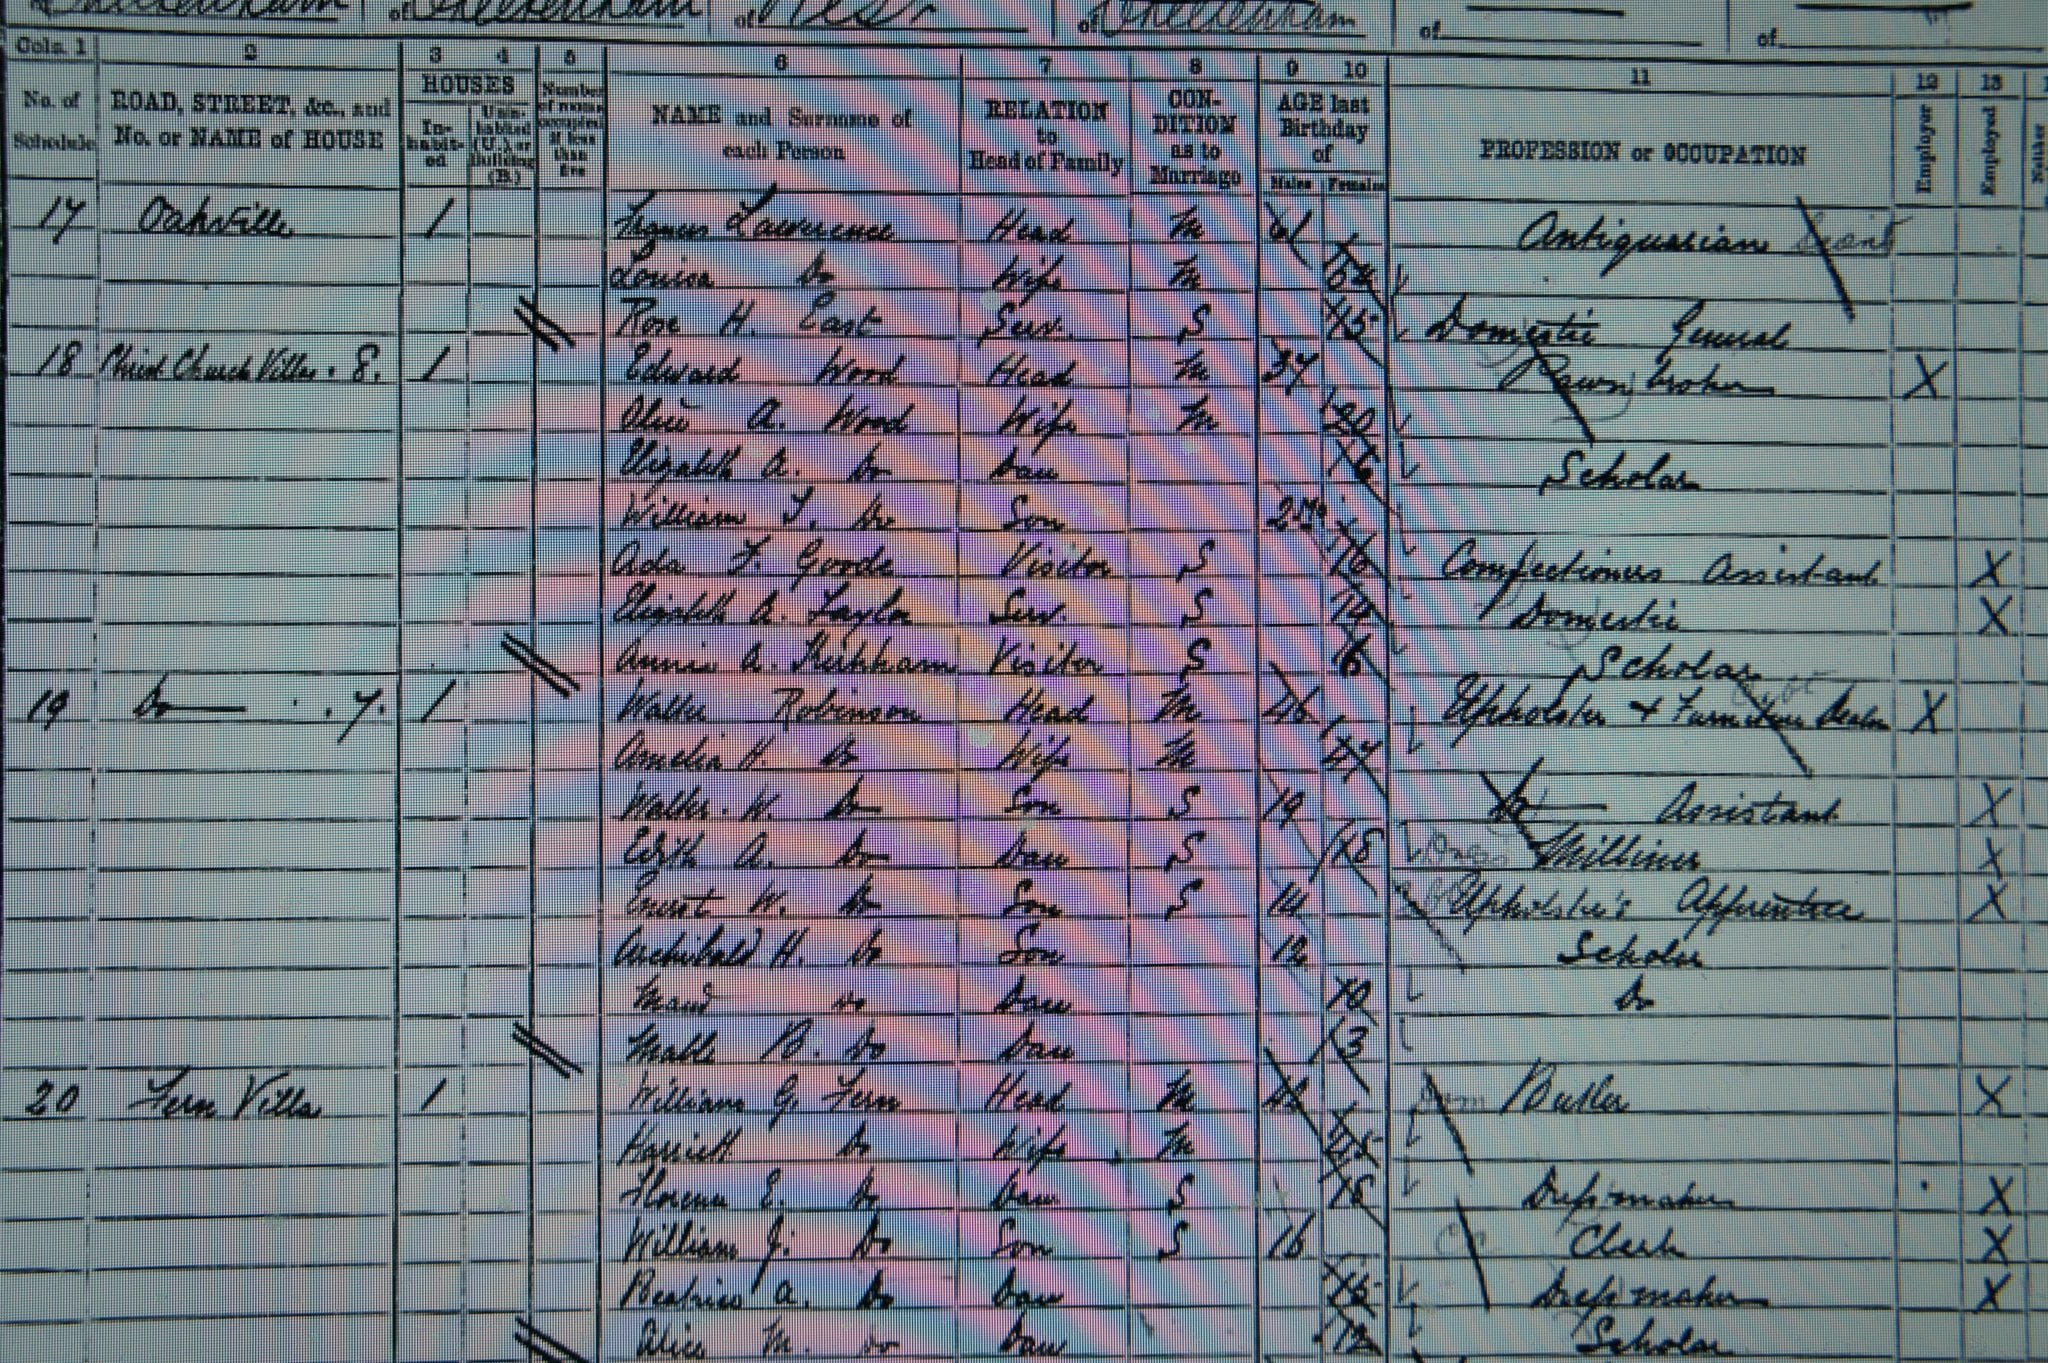 Cheltenham of Cheltenham of West of Cheltenham of of
Cols. 1 2 3 4 5 6 7 8 9 10 11 12 13
No. of Schedule ROAD, STREET, &c., and No. or NAME of HOUSE HOUSES In-habit-ed Unin-habited (U.), or Building (B.) Number of rooms occupied if less than five NAME and Surname of each Person RELATION to Head of Family CON-DITION as to Marriage AGE last Birthday of Males Females PROFESSION or OCCUPATION Employer Employed Neither
17 Oakville 1 Lawrence Head M 61 Antiquarian
Louisa Do Wife M
Rose H. East Serv. S 15 Domestic General
18 Christ Church Villas . 8. 1 Edward Wood Head M 37 Pawnbroker X
Alice A. Wood Wife M 30
Elizabeth A. Do Dau 6 Scholar
William T. Do Son
Ada F. Goode Visitor S 16 Confectioners Assistant X
Elizabeth A. Taylor Serv. S 14 Domestic X
Annie A. Visitor S 6 Scholar
19 Do 7. 1 Walter Robinson Head M 46 Upholster & Furniture Dealer X
Amelia H. Do Wife M 47
Walter. W. Do Son S 19 Do Assistant X
Edith A. Do Dau S 18 Milliner X
Ernest W. Do Son S 14 Upholster's Apprentice X
Archibald H. Do Son 12 Scholar
Maud Do Dau 10 Do
Mable B. Do Dau 3
20 Fern Villa 1 William G. Fern Head M Butler X
Harriett Do Wife M 45
Florence E. Do Dau S 18 Dressmaker X
William J. Do Son S 16 Clerk X
Beatrice A. Do Dau 15 Dressmaker X
Alice M. Do Dau 12 Scholar